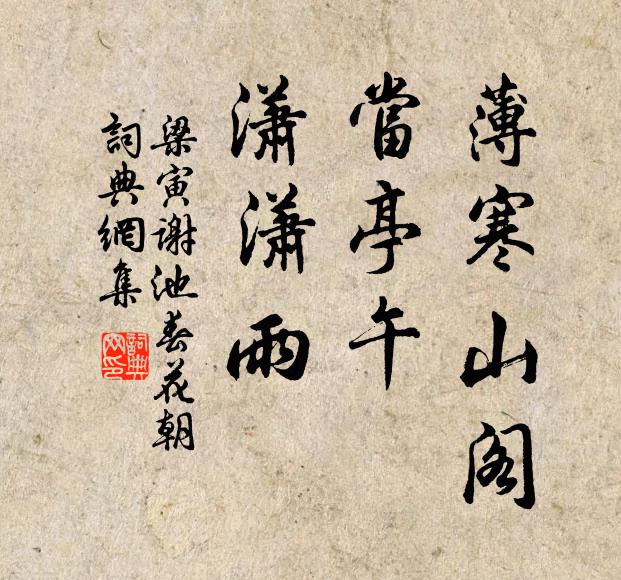 薄寒山阁
當亭午
瀟瀟雨
梁寅謝池春花朝
詞典網集
詞典網印